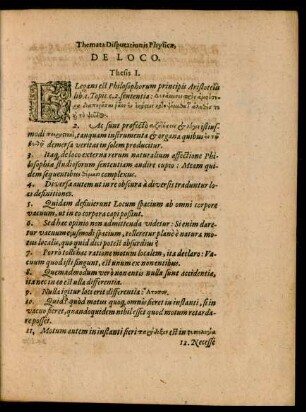 Themata Disputationis Physicæ,
DE LOCO.
Thesis I.
ELegans est Philosophorum principis Aristotelis
lib. 1. Topic. c. 2. sententia:
2. Ac sunt profectò istius-
modi tanquam instrumenta & organa quibus
demersa veritatem solem producitur.
3. Itaq, de loco externa rerum naturalium affectione Phi-
losophiæ studiosorum sententiam audire cupio: Meam qui-
dem sequentibus complexus.
4. Deversa autem ut in re obscura à diversis traduntur lo-
ci definitiones.
5. Quidam definierunt Locum spacium ab omni corpore
vacuum, ut in eo corpora capi possint.
6. Sed hæc opinio non admittenda videtur: Si enim dare-
tur vacuum ejusmodi spacium, tolleretur planè è natura mo-
tus localis, quo quid dici potest absurdius?
7. Porrò tolli hac ratione motum localem, ita declaro: Va-
cuum quod esse fingunt, est unum ex non entibus.
8. Quemadmodum verò non entis nulla sunt accidentia,
ita nec in eo est ulla differentia.
9. Nulla igitur loci erit differentia?
10. Quid? quòd motus quoq, omnis fieret in instanti, si in
vacuo fieret, quandoquidem nihil esset quod motum retarda-
re posset.
11. Motum autem in instanti fieri est in
12. Necesse